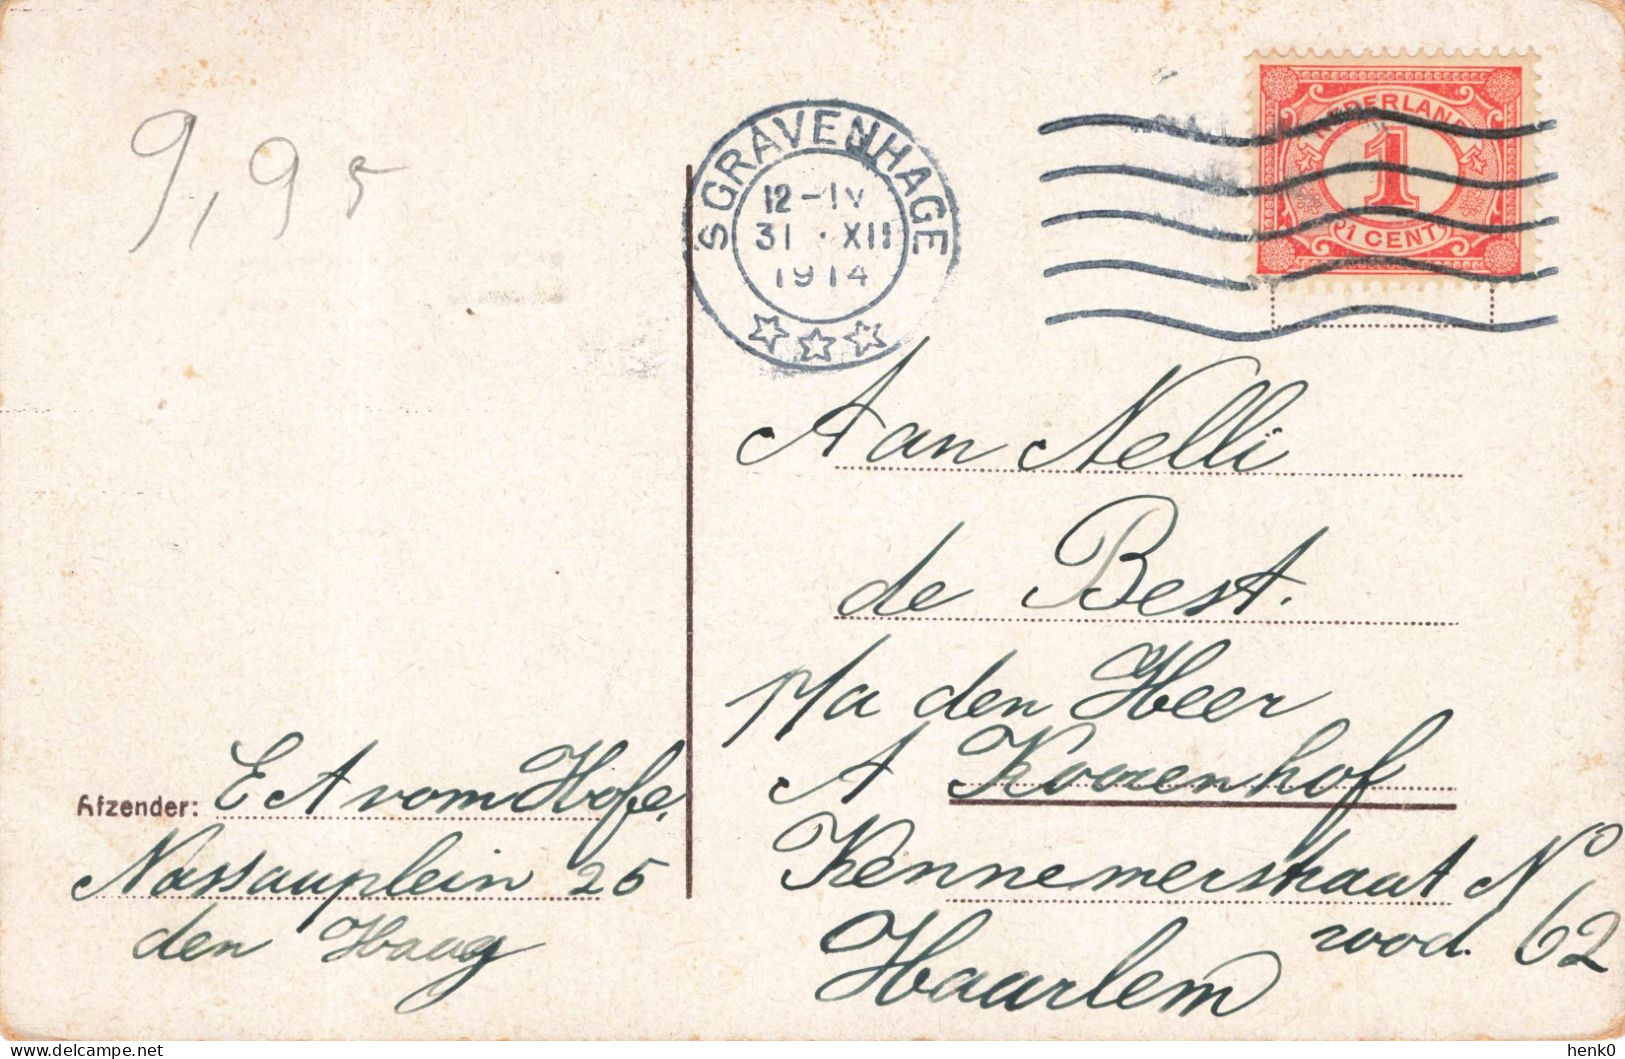 9,95
SGRAVENHAGE
12-IV
31 · XII
1914
NEDERLAND
1
1 CENT
Aan Nelli
de Best.
p/a den Heer
A Koorenhof
Kennemerstraat N
rood 62
Haarlem
Afzender: E A vom Hofe,
Nassauplein 25
den Haag
delcampe.net
henk0